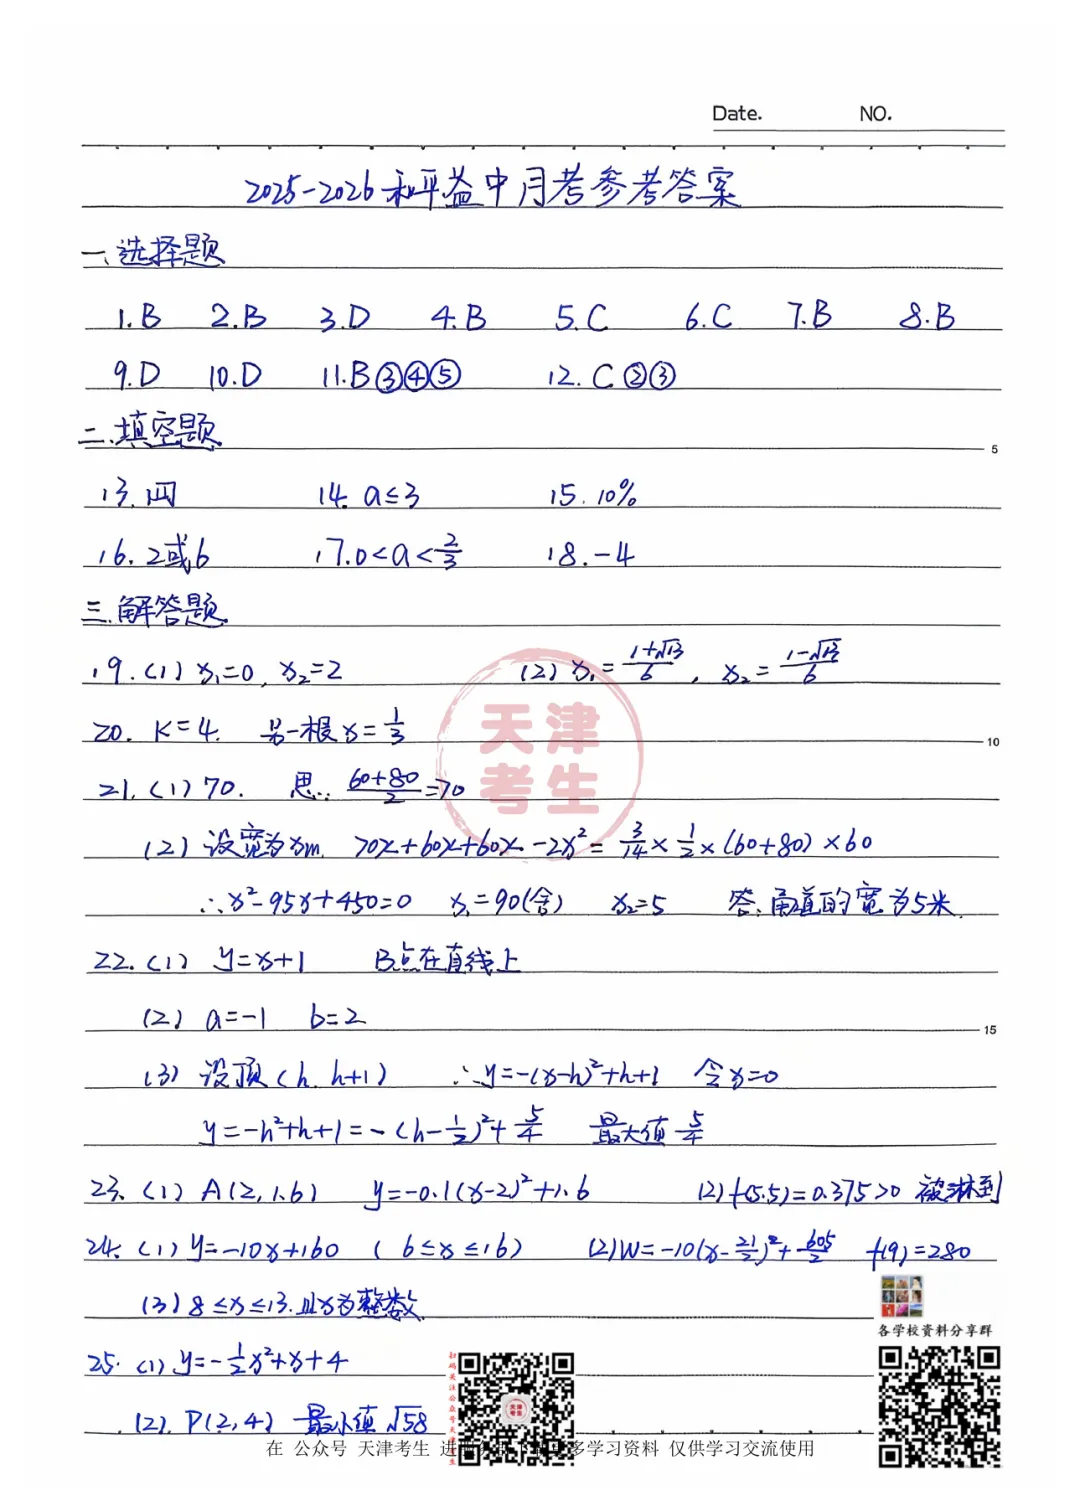 Date. NO.
2025-2026和平益中月考参考答案
一、选择题
1.B 2.B 3.D 4.B 5.C 6.C 7.B 8.B
9.D 10.D 11.B③④⑤ 12.C②③
二、填空题
5
13.四 14. a≤3 15.10%
16.2或6 17.0<a<2/3 18.-4
三.解答题
19.(1) x₁=0, x₂=2 (2) x₁=(1+√13)/6, x₂=(1-√13)/6
20. K=4. 另一根x=1/3
10
21.(1)70. 思: (60+80)/2=70
(2)设宽为xm. 70x+60x+60x-2x²=3/14×1/2×(60+80)×60
∴x²-95x+450=0 x₁=90(舍) x₂=5 答:甬道的宽为5米.
22.(1) y=x+1 B点在直线上
(2) a=-1 b=2
15
(3) 设顶(h, h+1) ∴y=-(x-h)²+h+1 令x=0
y=-h²+h+1=-(h-1/2)²+5/4 最大值5/4
23.(1) A(2,1.6) y=-0.1(x-2)²+1.6 (2)f(5.5)=0.375>0 被淋到
24.(1) y=-10x+160 (6≤x≤16) (2)W=-10(x-21/2)²+605/2 f(9)=280
(3) 8≤x≤13.且x为整数
25.(1) y=-1/2x²+x+4
(2). P(2,4) 最小值√58
天津考生
各学校资料分享群
扫码关注公众号天津考生
天津考生
在 公众号 天津考生 进 多学习资料 仅供学习交流使用